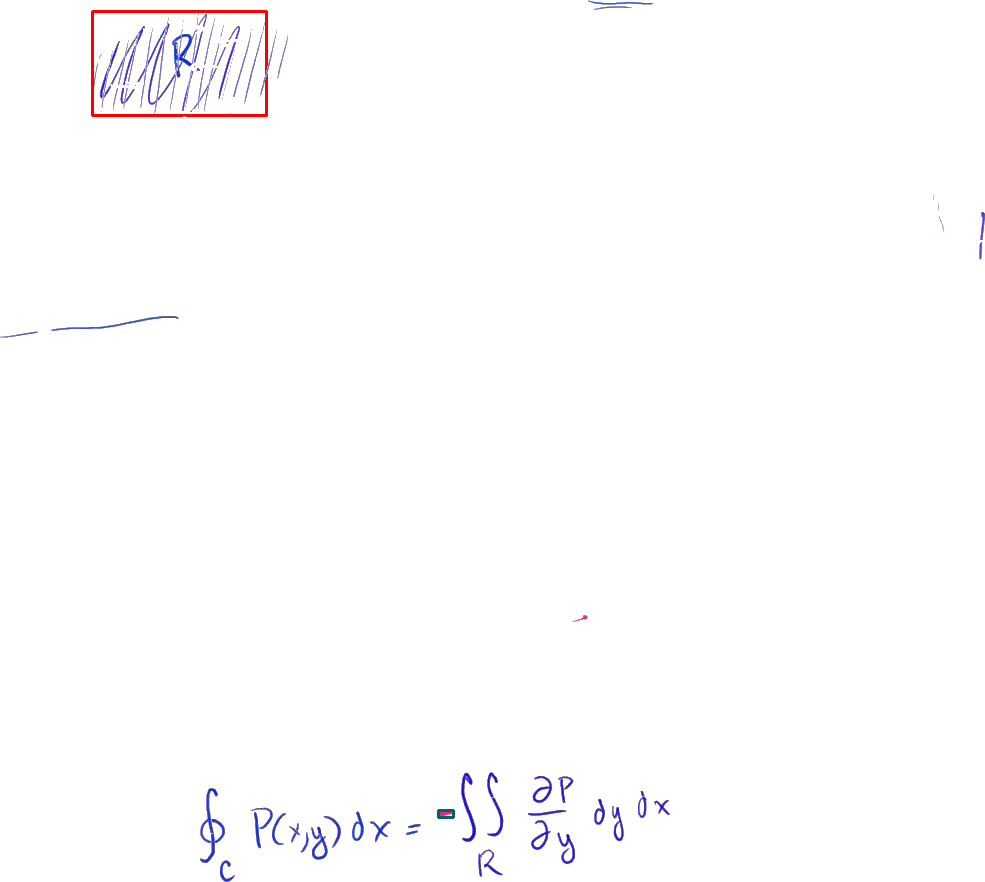 R
∮_C P(x,y) dx = -∬_R ∂P/∂y dy dx